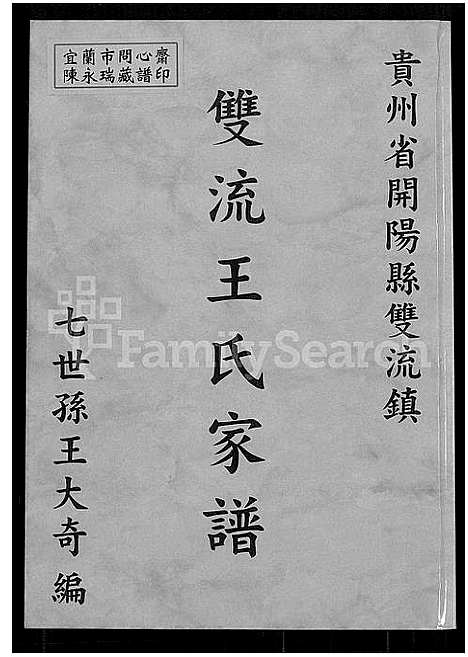 貴州省開陽縣雙流鎮
雙流王氏家譜
七世孫王大奇編
宜蘭市問心齋
陳永瑞藏譜印
FamilySearch